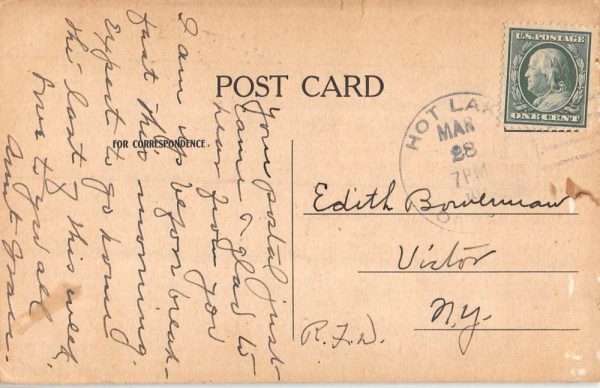 POST CARD
FOR CORRESPONDENCE.
U.S. POSTAGE
ONE CENT
HOT LAK
MAR
28
7PM
Edith Bowerman
Victor
N.Y.
R.F.D.
Your postal just
came & glad to
hear from you
I am up before break-
fast this morning.
Expect to go home
the last of this week.
Love to you all
Aunt Grace.